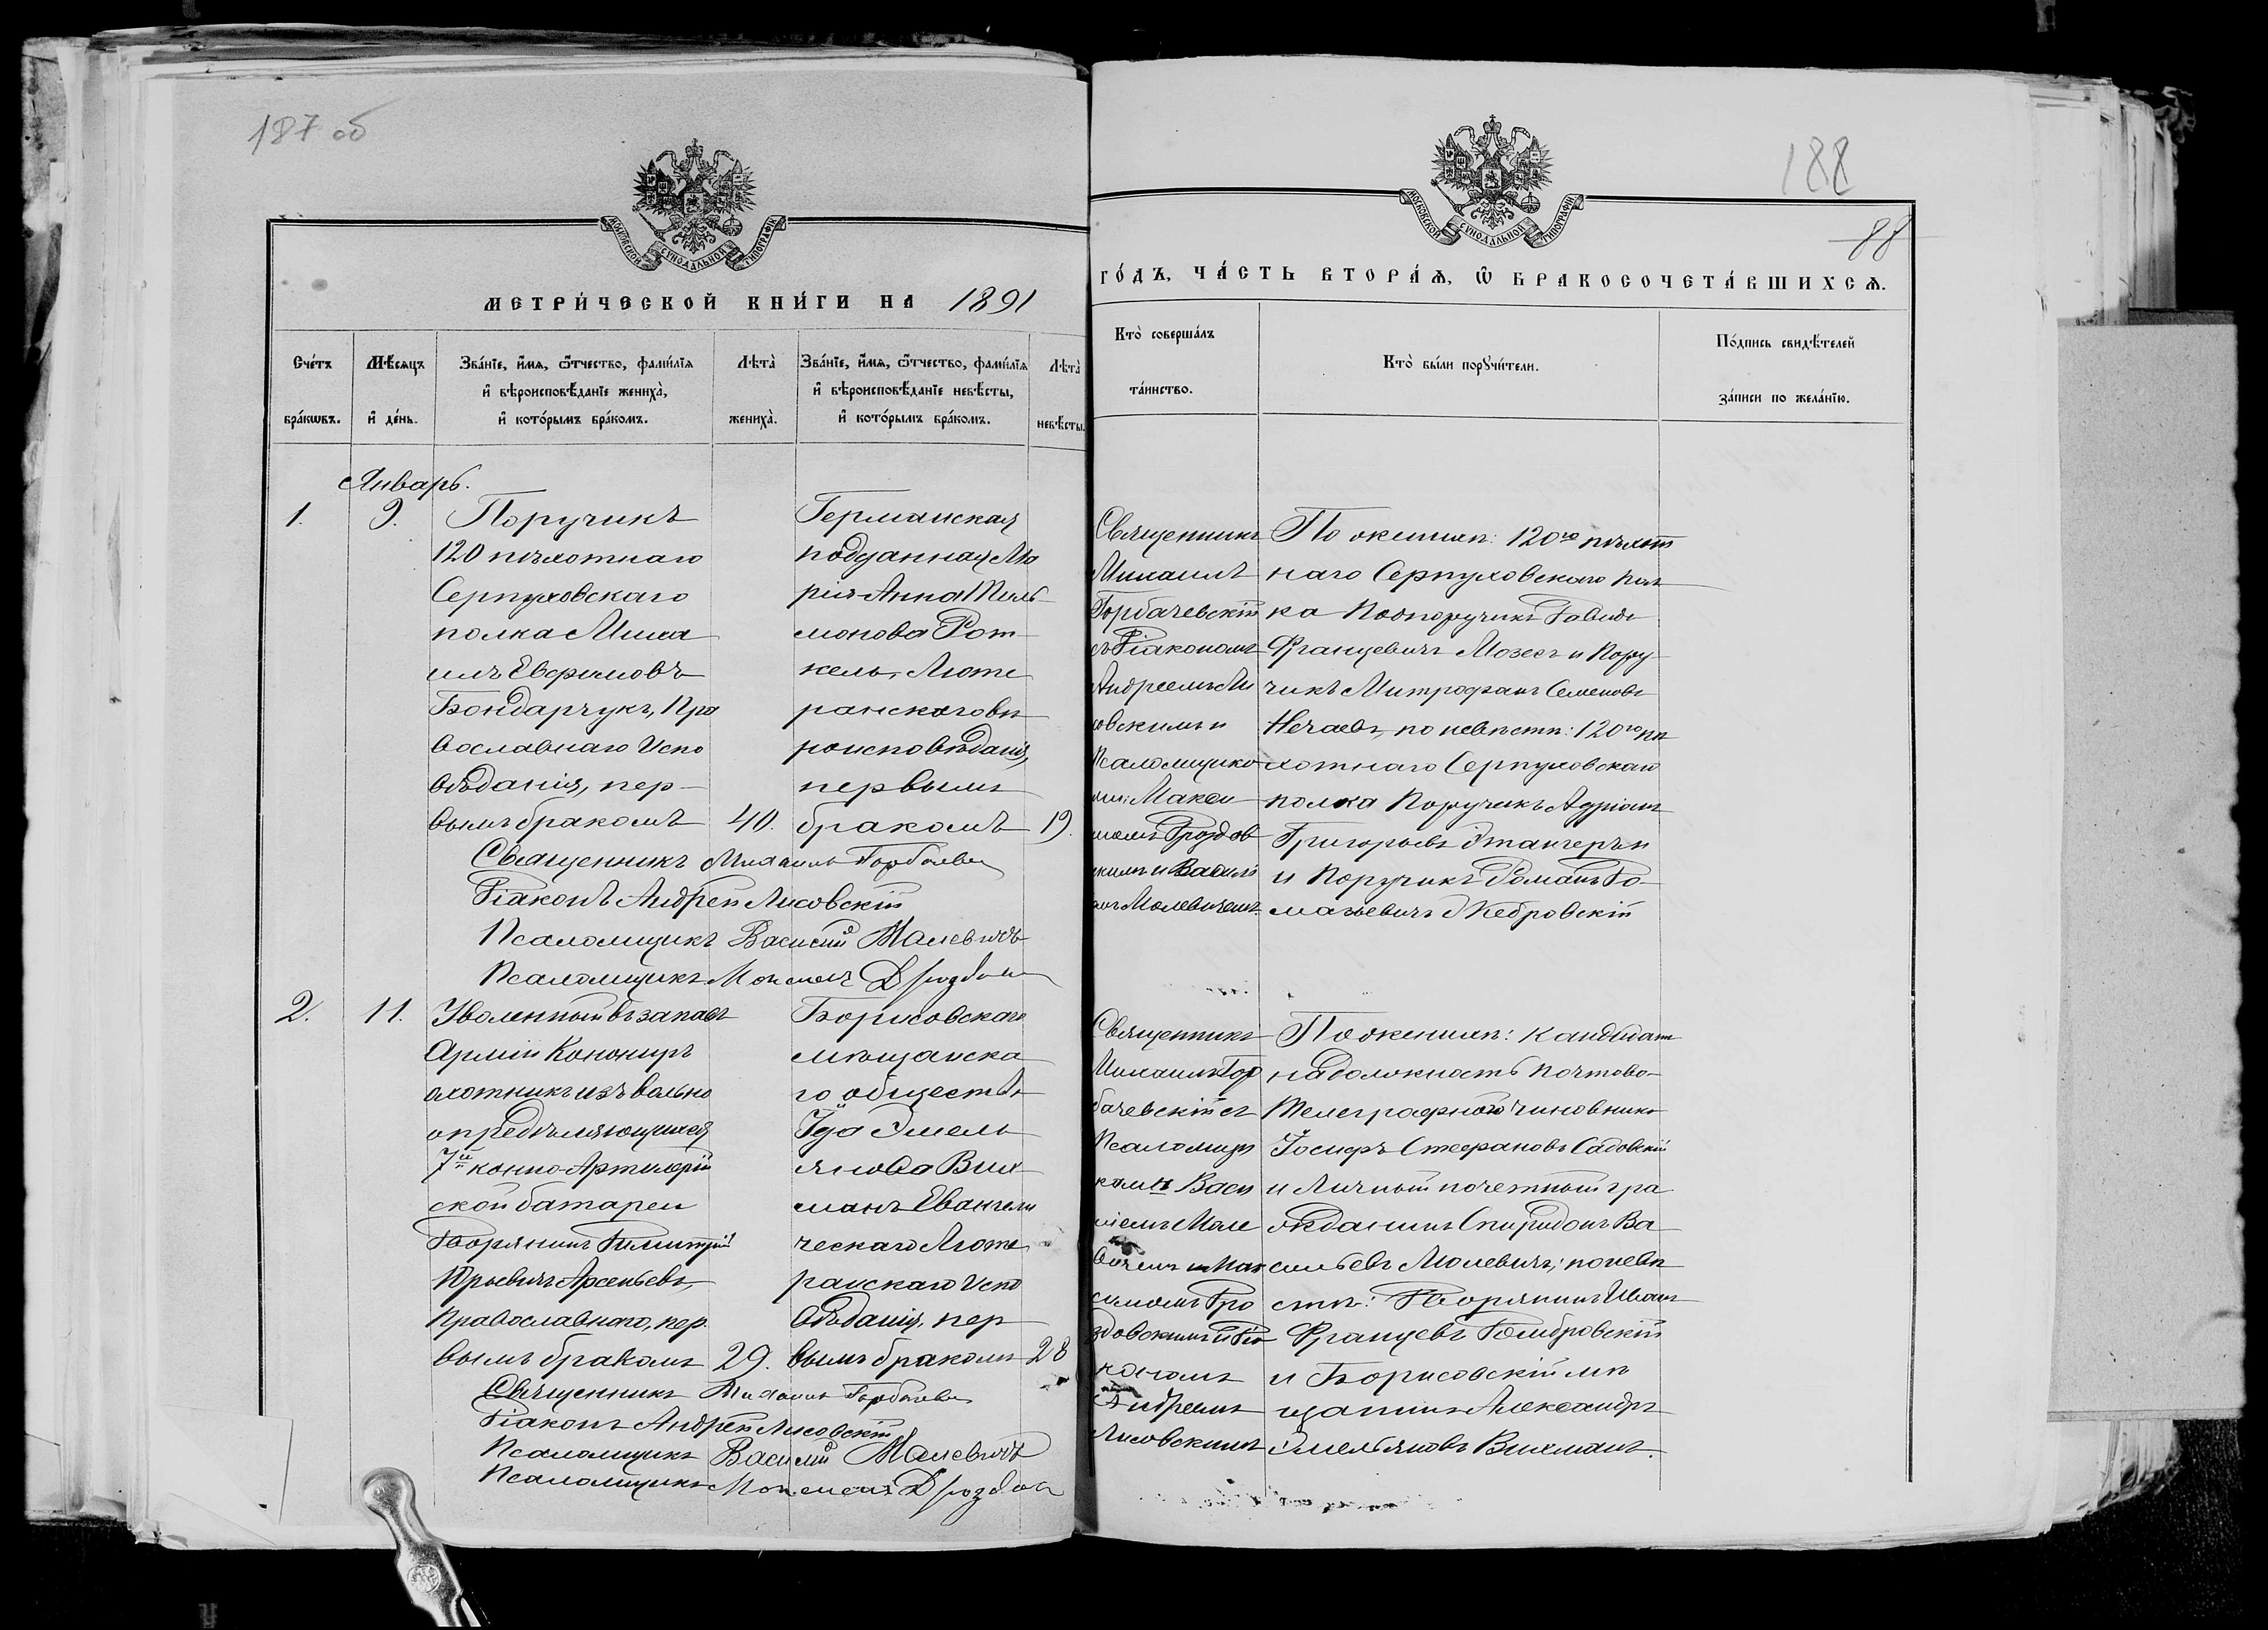 187 об
МОСКОВСКОЙ СѴНОДАЛЬНОЙ ТИПОГРАФІИ
МЕТРИ́ЧЕСКОЙ КНИ́ГИ НА 1891
Сче́тъ бра́кѡвъ.
Мѣ́сѧцъ и҆ де́нь.
Зва́нїе, и҆́мѧ, ѻ҆́тчество, фами́лїѧ
и҆ вѣроисповѣ́данїе жениха̀,
и҆ кото́рымъ бра́комъ.
Лѣта̀ жениха̀.
Зва́нїе, и҆́мѧ, ѻ҆́тчество, фами́лїѧ
и҆ вѣроисповѣ́данїе невѣ́сты,
и҆ кото́рымъ бра́комъ.
Лѣта̀ невѣ́сты.
Январь.
1. 9.
Поручикъ
120 пѣхотнаго
Серпуховскаго
полка Миха
илъ Евфимовъ
Бондарчукъ, Пра
вославнаго Испо
вѣданія, пер-
вымъ бракомъ 40.
Германская
подданная Ма
рія-Анна
монова Рот
кель, Люте
ранскаго вѣ
роисповѣданія,
первымъ
бракомъ 19.
Священникъ Михаилъ Горбачев
Діаконъ Андрей Лисовскій
Псаломщикъ Василій Малевичъ
Псаломщикъ Максимъ Дроздов
2. 11.
Уволенный въ запасъ
Арміи Кононир
охотникъ изъ вольно
опредѣляющихся
7й конно-Артилерій
ской батареи
Дворянинъ Димитрій
Юрьевичъ Арсеньевъ,
Православнаго, пер
вымъ бракомъ 29.
Борисовскаго
мѣщанска
го общества
Ида Эмель
янова Вих
манъ Евангели
ческаго Люте
ранскаго Испо
вѣданія, пер
вымъ бракомъ 28
Священникъ Михаилъ Горбачев
Діаконъ Андрей Лисовскій
Псаломщикъ Василій Малевичъ
Псаломщикъ Максимъ Дроздов
188
МОСКОВСКОЙ СѴНОДАЛЬНОЙ ТИПОГРАФІИ
88
ГО́ДЪ, ЧА́СТЬ ВТОРА́Ѧ, Ѽ БРАКОСОЧЕТА́ВШИХСѦ.
Кто̀ соверша́лъ та́инство.
Кто̀ бы́ли порꙋчи́тели.
По́дпись свидѣ́телей
за́писи по жела́нїю.
Священникъ
Михаилъ
Горбачевскій
съ Діакономъ
Андреемъ Ли
совскимъ и
Псаломщика
ми: Макси
момъ Дроздов
скимъ и Васил
емъ Малевичемъ.
По женихѣ: 120го пѣхот
наго Серпуховскаго пол
ка Подпоручикъ Давидъ
Францевичъ Мозесъ и Пору-
чикъ Митрофанъ Семеновъ
Нечаевъ, по невѣстѣ: 120го пѣ
хотнаго Серпуховскаго
полка Поручикъ Адріанъ
Григорьевъ Этангеръ и
и Поручикъ Романъ До-
матьевичъ Кебровскій
Священникъ
Михаилъ Гор
бачевскій съ
Псаломщи
комъ Васи
ліемъ Мале
вичемъ и Мак
симомъ Дро
здовскимъ и Діа
кономъ
Андреемъ
Лисовскимъ
По женихѣ: Кандидатъ
на должность почтово-
Телеграфнаго чиновника
Іосифъ Стефановъ Садовскій
и Личный почетный гра
жданинъ Спиридонъ Ва
сильевъ Малевичъ; по невѣ
стѣ: Дворянинъ Иванъ
Францевъ Домбровскій
и Борисовскій мѣ
щанинъ Александръ
Эмельяновъ Вихманъ.